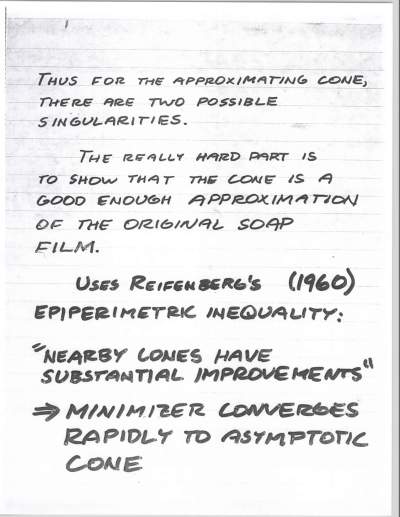 THUS FOR THE APPROXIMATING CONE,
THERE ARE TWO POSSIBLE
SINGULARITIES.
THE REALLY HARD PART IS
TO SHOW THAT THE CONE IS A
GOOD ENOUGH APPROXIMATION
OF THE ORIGINAL SOAP
FILM.
USES REIFENBERG'S (1960)
EPIPERIMETRIC INEQUALITY:
"NEARBY CONES HAVE
SUBSTANTIAL IMPROVEMENTS"
⇒ MINIMIZER CONVERGES
RAPIDLY TO ASYMPTOTIC
CONE